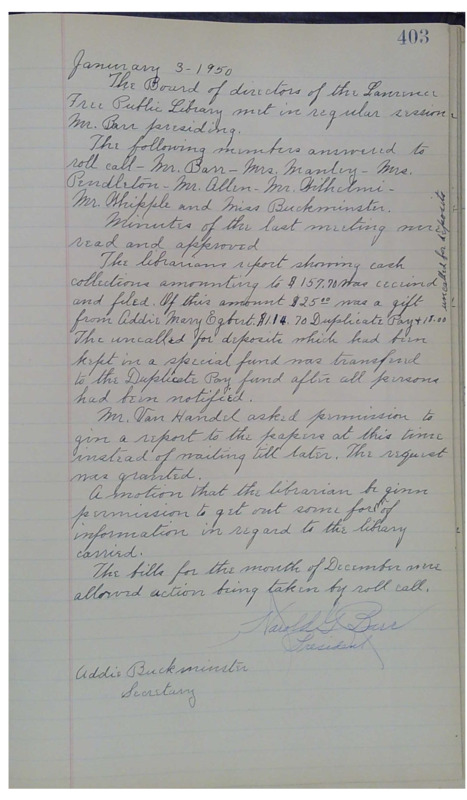 403
January 3-1950
The Board of directors of the Lawrence
Free Public Library met in regular session
Mr. Barr presiding.
The following members answered to
roll call - Mr. Barr - Mrs. Manley - Mrs.
Pendleton - Mr. Allen - Mr. Wilhelmi -
Mr. Whipple and Miss Buckminster.
Minutes of the last meeting were
read and approved
The librarians report showing cash
collections amounting to $157.70 was received
and filed. Of this amount $25.00 was a gift
from Addie Mary Egbert. $114.70 Duplicate Pay & 18.00
uncalled for deposits
The uncalled for deposits which had been
kept in a special fund was transfered
to the Duplicate Pay fund after all persons
had been notified.
Mr. Van Handel asked permission to
give a report to the papers at this time
instead of waiting till later. The request
was granted.
A motion that the librarian be given
permission to get out some form of
information in regard to the library
carried.
The bills for the month of December were
allowed action being taken by roll call.
Harold G Barr
President
Addie Buckminster
Secretary